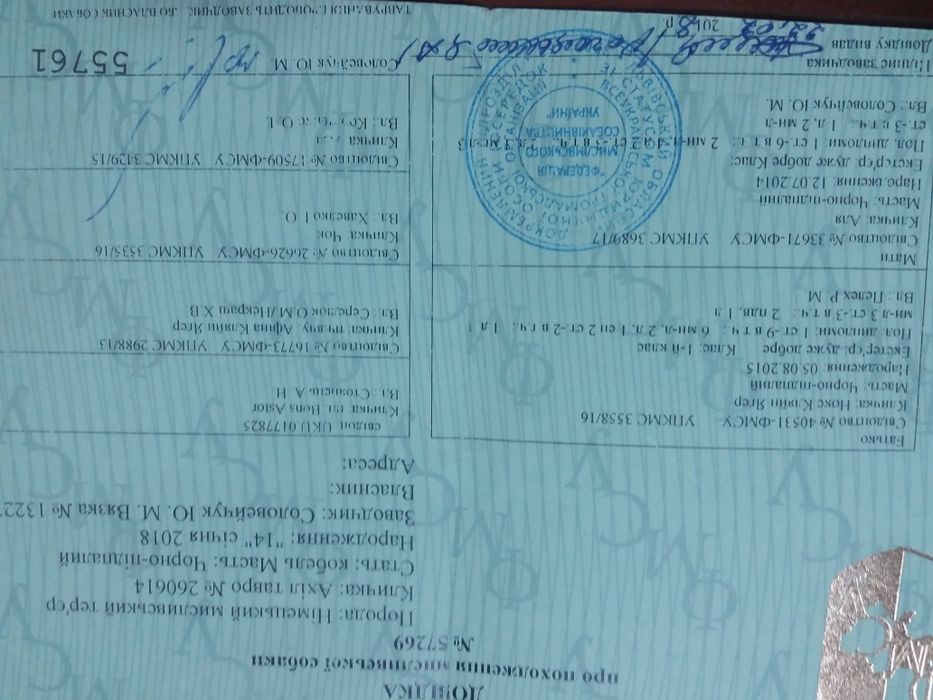 ДОВІДКА
про походження мисливської собаки
№ 57269
Порода: Німецький мисливський тер'єр
Кличка: Ахіл тавро № 260614
Стать: кобель Масть: Чорно-підпалий
Народження: "14" січня 2018
Заводчик: Соловейчук Ю. М. Вязка № 1322
Власник:
Адреса:
Батько
Свідоцтво № 40531-ФМСУ УПКМС 3558/16
Кличка: Нокс Кляйн Ягер
Масть: Чорно-підпалий
Народження: 05.08.2015
Екстер'єр: дуже добре Клас: 1-й клас
Пол. дипломи: 1 ст-9-в т ч : 6 мн-л, 2 л, 1 сп 2 ст-2-в т ч : 1 л
мн-л 3 ст.-3-в т ч : 2 п/дв, 1 л
Вл.: Пелех Р. М
свідоц. UKU.0177825
Кличка: ін. Bons Astor
Вл.: Стоянець А. Н
Свідоцтво № 16773-ФМСУ УПКМС 2988/13
Кличка: Афіна Кляйн Ягер
Вл.: Середюк О.М./Некраш Х.В
Мати
Свідоцтво № 33671-ФМСУ УПКМС 3689/17
Кличка: Аля
Масть: Чорно-підпалий
Народження: 12.07.2014
Екстер'єр: дуже добре Клас:
Пол. дипломи: 1 ст.-6-в т ч : 2 мн-л,
ст.-3-в т ч.: 1 л, 2 мн-л
Вл.: Соловейчук Ю. М.
Свідоцтво № 26626-ФМСУ УПКМС 3535/16
Кличка: Чок
Вл.: І О.
Свідоцтво № 17509-ФМСУ УПКМС 3429/15
Кличка
Вл.: О І.
Підпис заводчика Соловейчук Ю. М. 55761
Довідку видав
22.02 2018 р
ВІДОКРЕМЛЕНИЙ ПІДРОЗДІЛ ЛЬВІВСЬКИЙ ОБЛАСНИЙ ОСЕРЕДОК ЗІ СТАТУСОМ ЮРИДИЧНОЇ ОСОБИ
ВСЕУКРАЇНСЬКОЇ ГРОМАДСЬКОЇ ОРГАНІЗАЦІЇ
"ФЕДЕРАЦІЯ
МИСЛИВСЬКОГО
СОБАКІВНИЦТВА
УКРАЇНИ"
ТАВРУВАННЯ ПРОВОДИТЬ ЗАВОДЧИК АБО ВЛАСНИК СОБАКИ